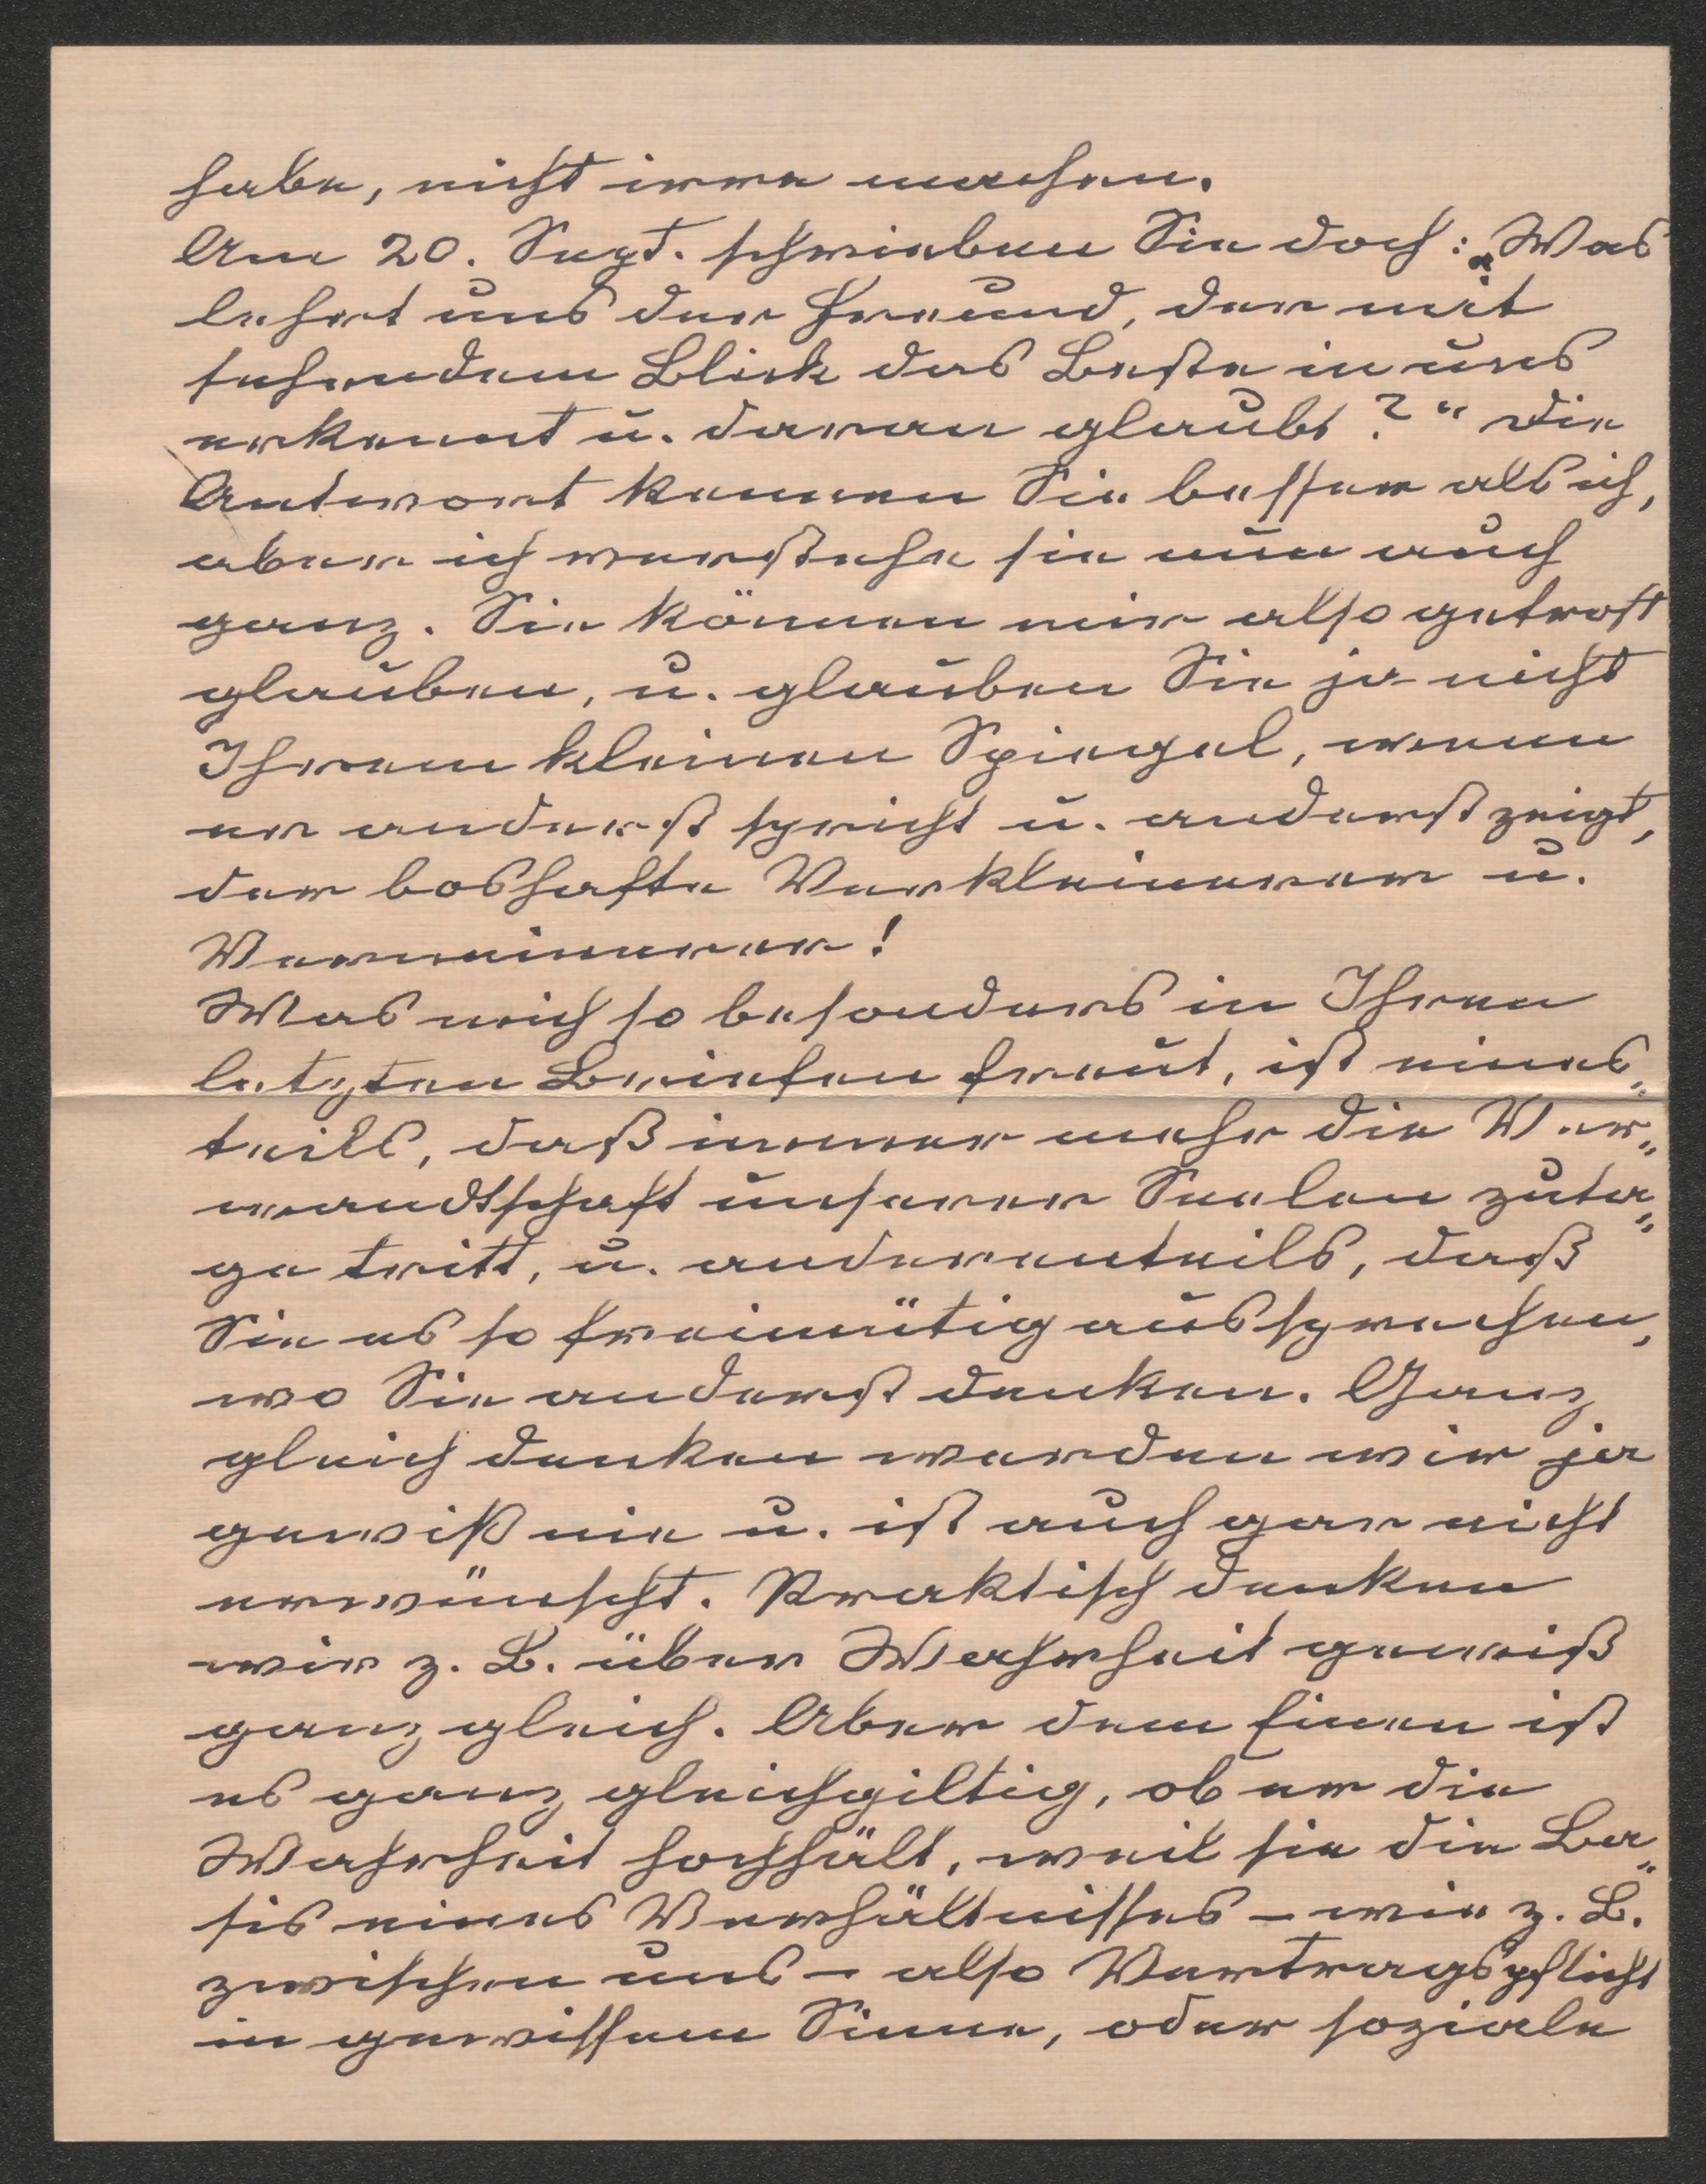 habe, nicht irre machen.
Am 20. Sept. schrieben Sie doch: „Was
lehrt uns der Freund, der mit
sehendem Blick das Beste in uns
erkennt u. daran glaubt?“ Die
Antwort kennen Sie besser als ich,
aber ich verstehe sie nun auch
ganz. Sie können mir also getrost
glauben, u. glauben Sie ja nicht
Ihrem kleinen Spiegel, wenn
er anderst spricht u. anderst zeigt,
der boshafte Verkleinerer u.
Verneinerer!
Was mich so besonders in Ihren
letzten Briefen freut, ist eines„
teils, daß immer mehr die Ver„
wandtschaft unserer Seelen zuta„
ge tritt, u. anderenteils, daß
Sie es so freimütig aussprechen,
wo Sie anderst denken. Ganz
gleich denken werden wir ja
gewiß nie u. ist auch gar nicht
erwünscht. Praktisch denken
wir z. B. über Wahrheit gewiß
ganz gleich. Aber dem Einen ist
es ganz gleichgiltig, ob er die
Wahrheit hochhält, weil sie die Ba„
sis eines Verhältnisses – wie z. B.
zwischen uns – also Vertragspflicht
in gewissem Sinne, oder soziale